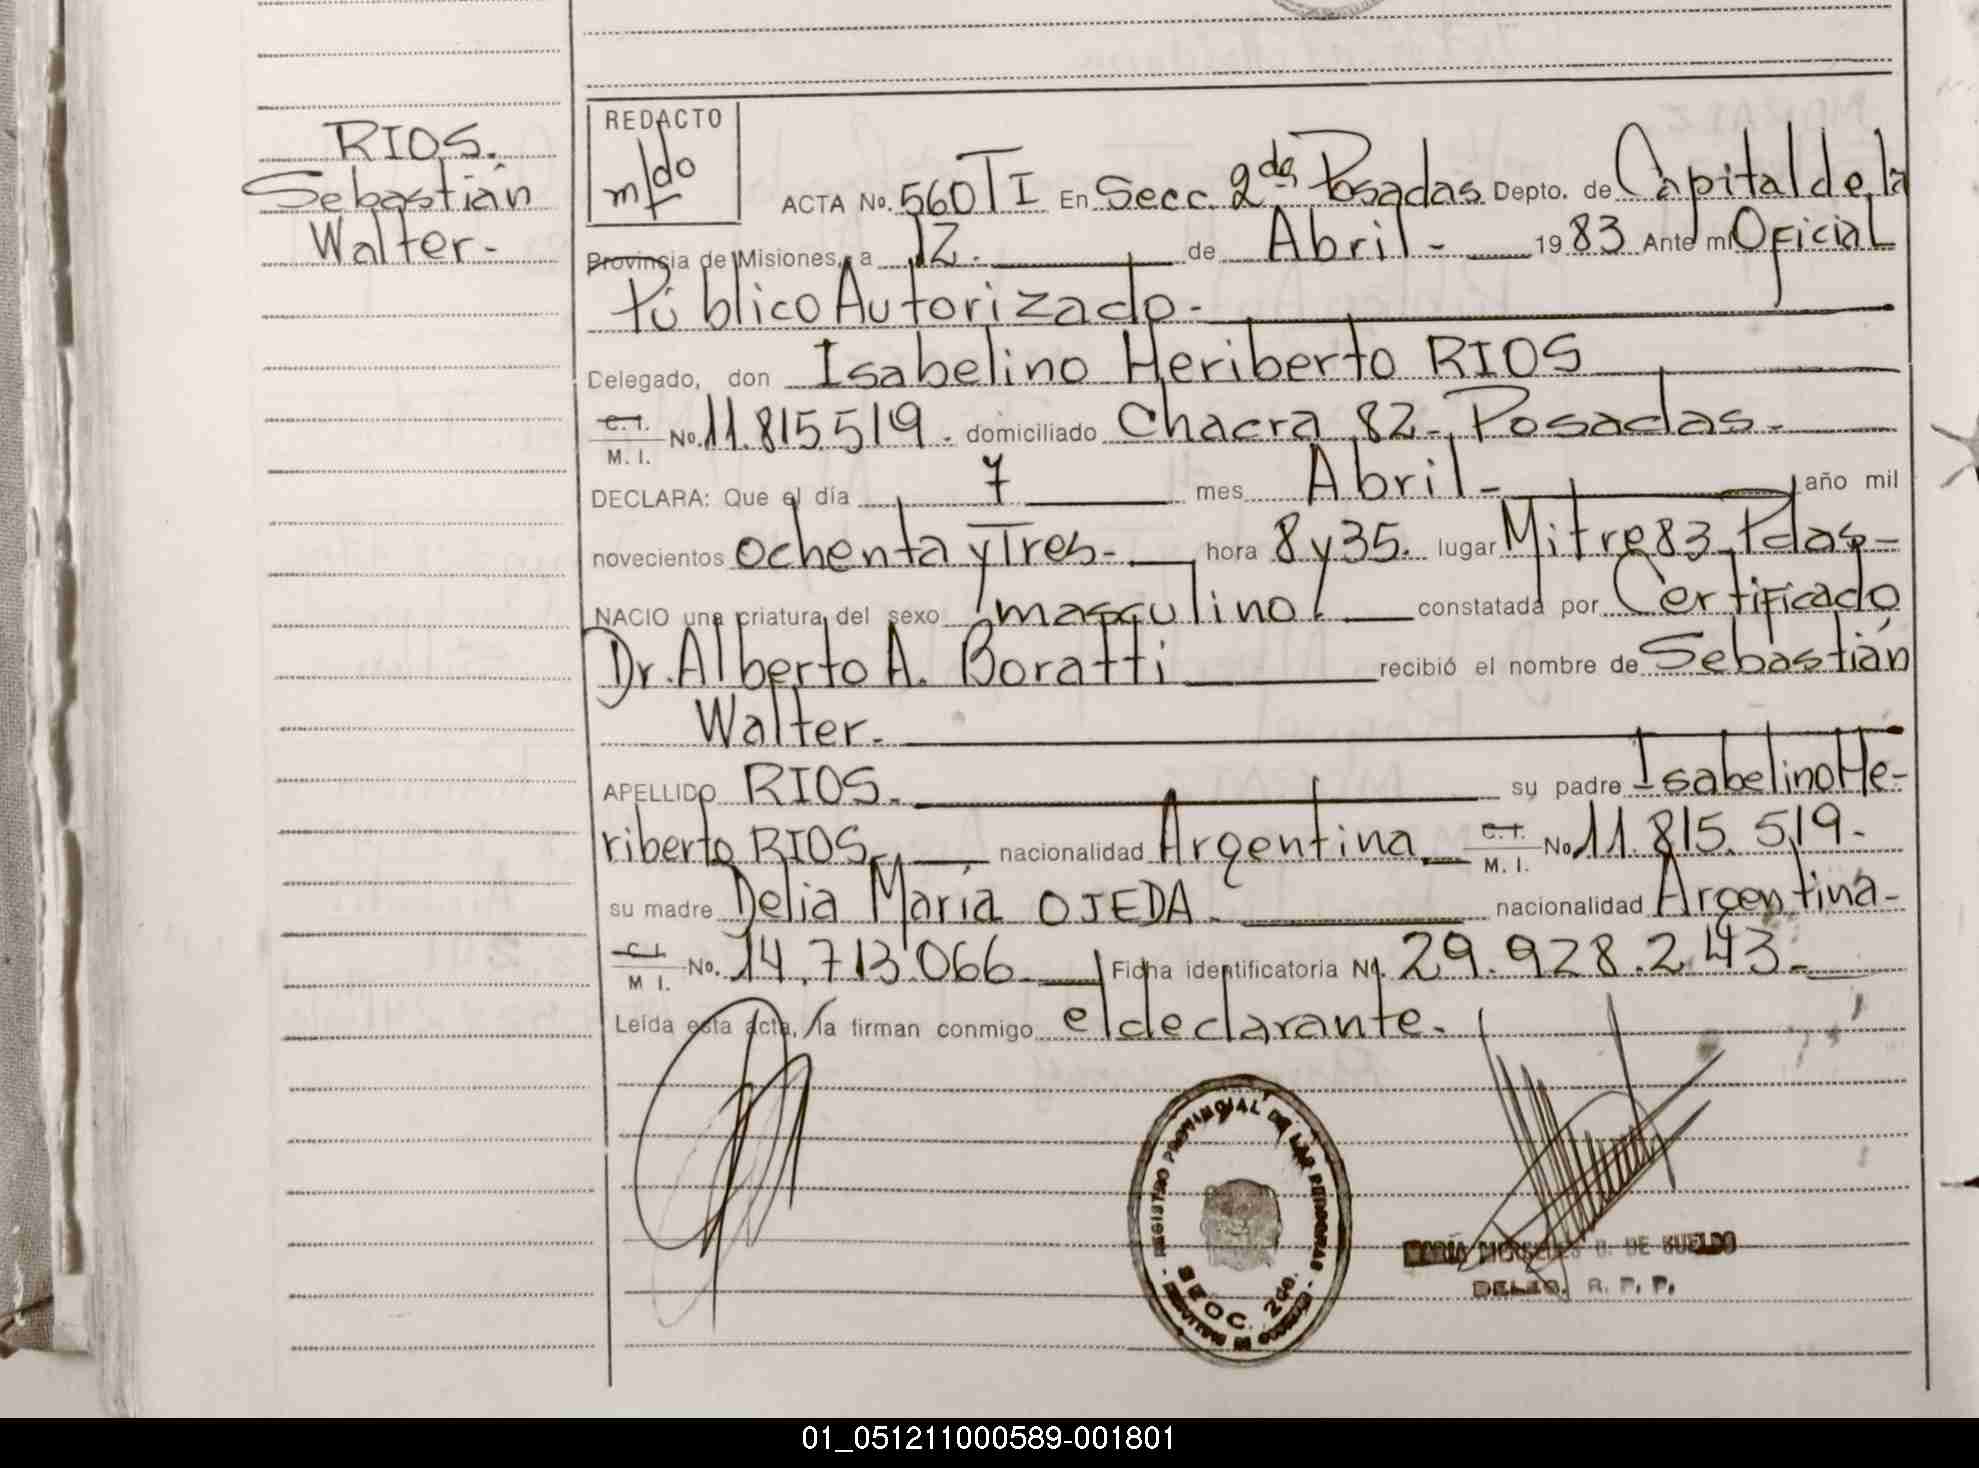 RIOS.
Sebastián
Walter.-
REDACTO
m/do
ACTA No. 560 T I En Secc. 2da Posadas Depto. de Capital de la
Provincia de Misiones, a 12.- de Abril.- 1983 Ante mi Oficial
Público Autorizado.-
Delegado, don Isabelino Heriberto RIOS
C.I.
M. I.
No. 11.815.519. domiciliado Chacra 82-Posadas.-
DECLARA: Que el día 7 mes Abril.- año mil
novecientos ochenta y Tres.- hora 8 y 35. lugar Mitre 83-Pdas-
NACIO una criatura del sexo "masculino" constatada por Certificado
Dr. Alberto A. Boratti recibió el nombre de Sebastián
Walter.-
APELLIDO RIOS.- su padre Isabelino He-
riberto RIOS.- nacionalidad Argentina.- C.I.
M. I.
No. 11.815.519.-
su madre Delia María OJEDA.- nacionalidad Argentina-
C.I.
M I.
No. 14.713.066 Ficha identificatoria No. 29.928.243.-
Leída esta acta, la firman conmigo el declarante.-
REGISTRO PROVINCIAL DE LAS PERSONAS
SECC. 2da.
DE DUELDO
DELEG. R. P. P.
01_051211000589-001801